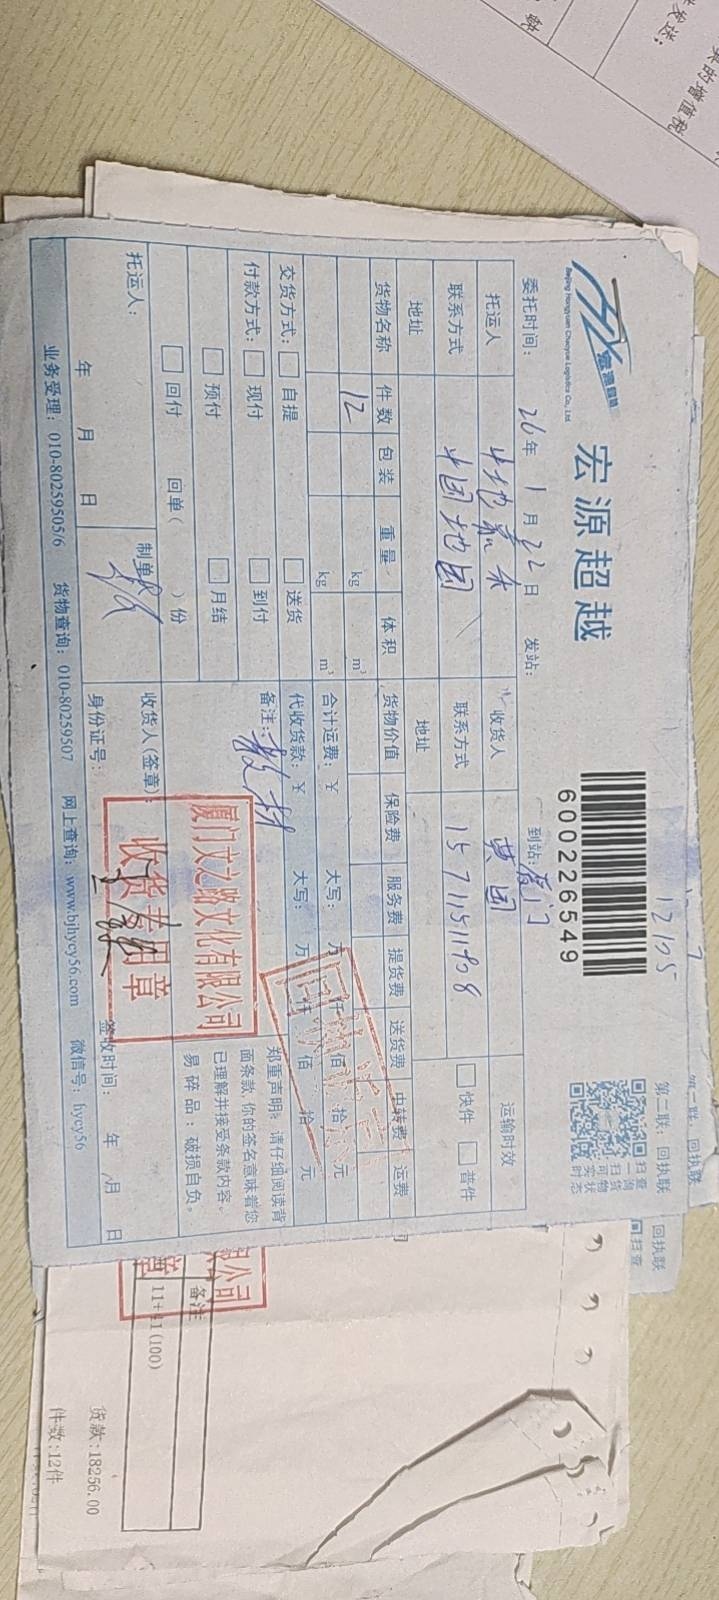 宏源超越
Beijing Hongyuan Chaoyue Logistics Co., Ltd.
宏源超越
600226549
第二联：回执联
扫查
一询
扫货
可物
实状
时态
委托时间： 26年 1月 22日 发站： 到站：厦门
托运人 收货人 黄团 运输时效
联系方式 中国地图 联系方式 15711511908 快件 普件
地址 地址
货物名称 件数 包装 重量 体积 货物价值 保险费 服务费 提货费 送货费 中转费 运费
12 kg m³ 合计运费：￥ 大写： 万 仟 佰 拾 元
kg m³ 代收货款：￥ 大写： 万 仟 佰 拾 元
交货方式： 自提 送货 备注：教材
付款方式： 现付 到付
预付 月结
回付 回单（ ）份
郑重声明：请仔细阅读背
面条款，你的签名意味着您
已理解并接受条款内容。
易碎品：破损自负。
厦门文之路文化有限公司
收货专用章
托运人： 制单 收货人(签章)：
年 月 日 身份证号： 签收时间： 年 月 日
业务受理：010-80259505/6 货物查询：010-80259507 网上查询：www.bjhycy56.com 微信号：hycy56
第二联：回执联
回执联
扫查
限公司
章
备注
11+ 1(100)
货款:18256.00
件数:12件